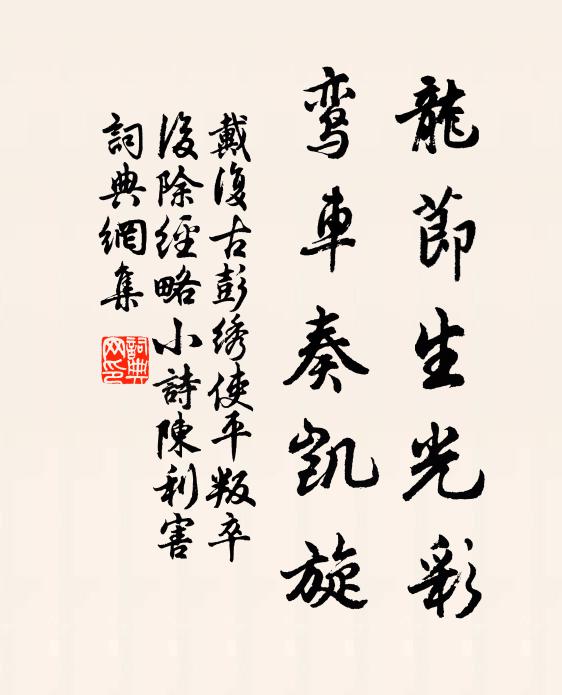 龍節生光彩
鸾車奏凱旋
戴復古彭绣使平叛卒
後除經略小詩陳利害
詞典網集
詞典
网印